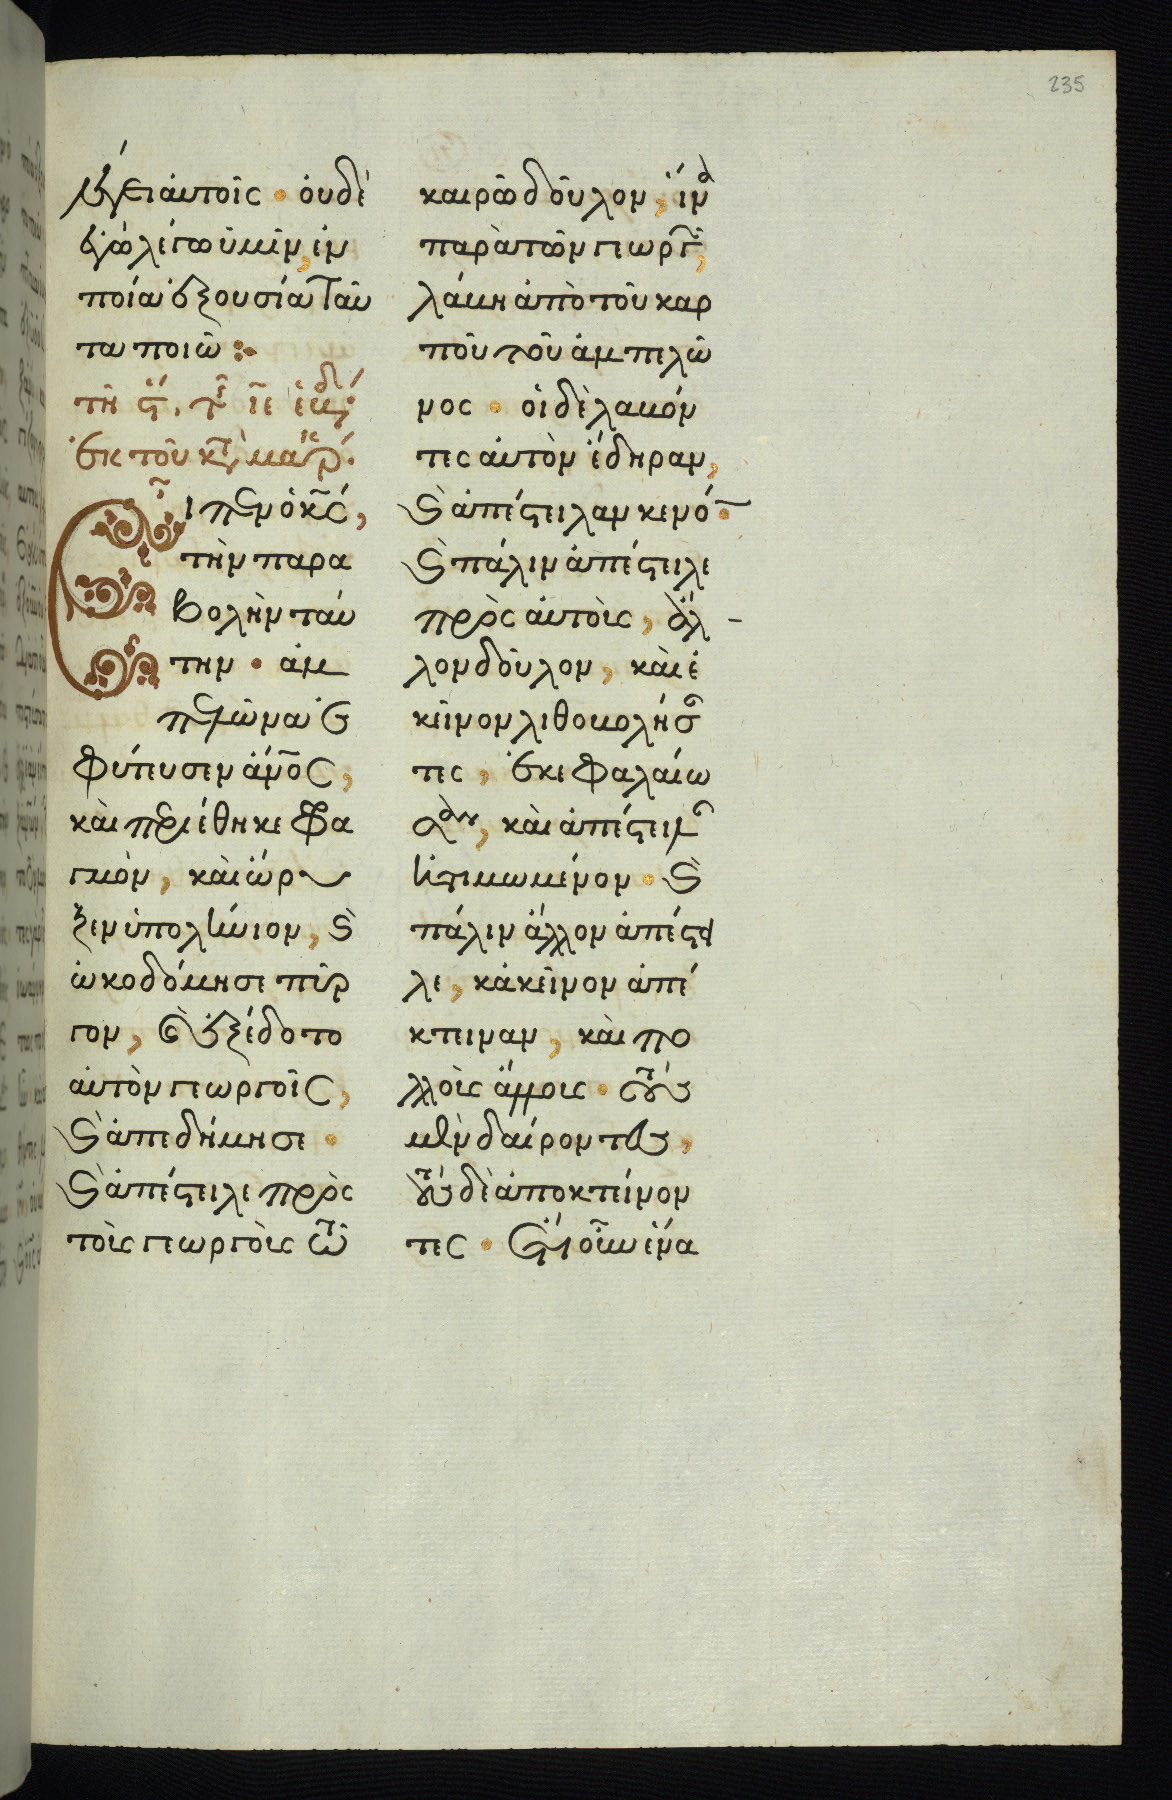 235
λέγει αὐτοῖς· οὐδὲ
ἐγὼ λέγω ὑμῖν, ἐν
ποία ἐξουσία ταῦ
τα ποιῶ:
τῆ
ἐκ τοῦ κτ μάρ.
ιπεν ὁ κς,
τὴν παρα
βολὴν ταύ
την· ἀμ
πελῶνα ἐ
φύτευσεν ἄνος,
καὶ περιέθηκε φρα
γμὸν, καὶ ὤρυ
ξεν ὑπολήνιον, καὶ
ὠκοδόμησε πύρ
γον, καὶ ἐξέδοτο
αὐτὸν γεωργοῖς,
καὶ ἀπεδήμησε·
καὶ ἀπέστειλε πρὸς
τοὺς γεωργοὺς τῶ
καιρῶ δοῦλον, ἵνα
παρὰ τῶν γεωργῶν,
λάβη ἀπὸ τοῦ καρ
ποῦ τοῦ ἀμπελῶ
νος· οἱ δὲ λαβόν
τες αὐτὸν ἔδηραν,
καὶ ἀπέστειλαν κενόν·
καὶ πάλιν ἀπέστειλε
πρὸς αὐτοὺς, ἄλ-
λον δοῦλον, καὶ ἐ
κεῖνον λιθοβολήσαν
τες, ἐκεφαλαίω
σαν, καὶ ἀπέστειλαν
ἠτιμωμένον· καὶ
πάλιν ἄλλον ἀπέστει
λε, κἀκεῖνον ἀπέ
κτειναν, καὶ πο
λλοὺς ἄλλους· τοὺς
μὲν δαίροντες,
τοὺς δὲ ἀποκτένον
τες· ἔτι οὖν ἕνα